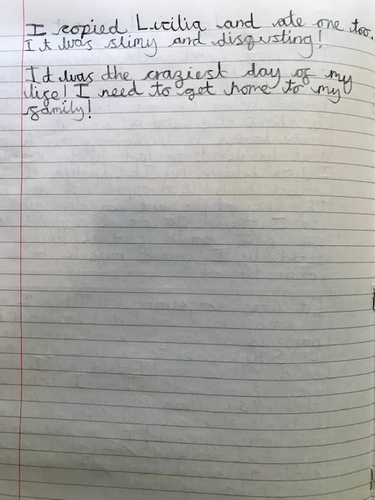 I copied Lucilia and ate one too.
It was slimy and disgusting!
It was the craziest day of my
life! I need to get home to my
family!